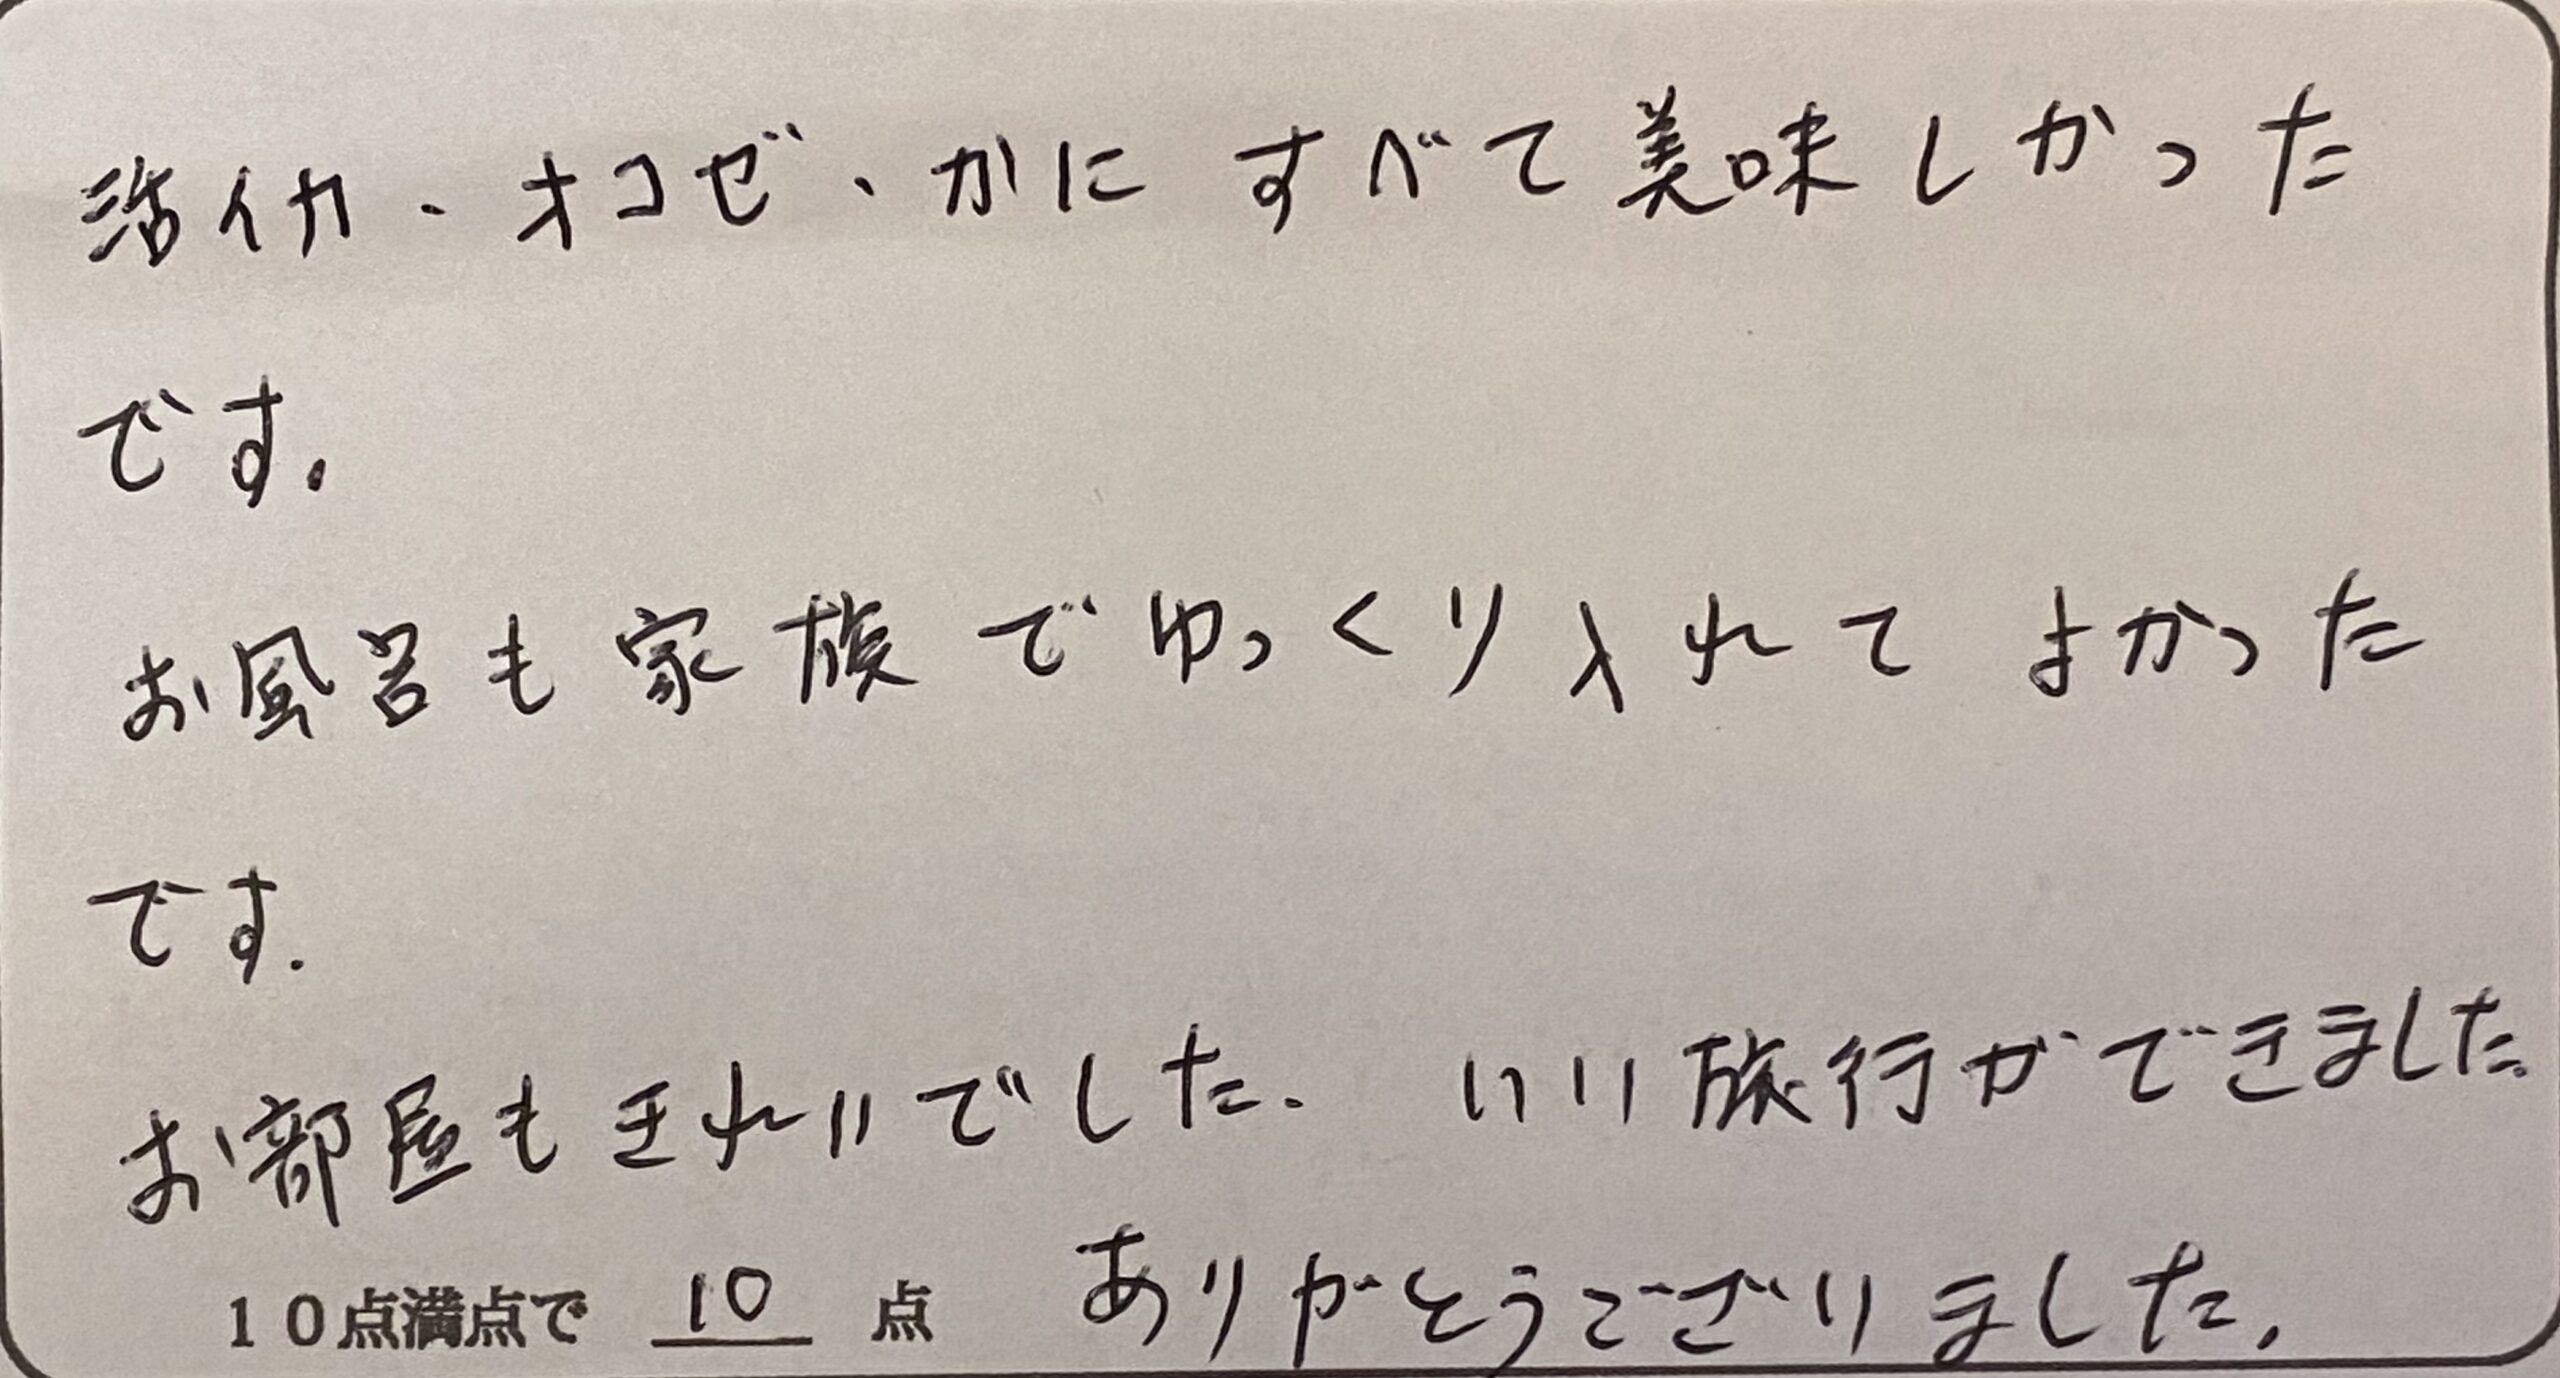 活イカ・オコゼ・かに すべて美味しかった
です。
お風呂も家族でゆっくり入れて よかった
です.
お部屋もきれいでした. いい旅行ができました.
10点満点で 10 点 ありがとうございました。